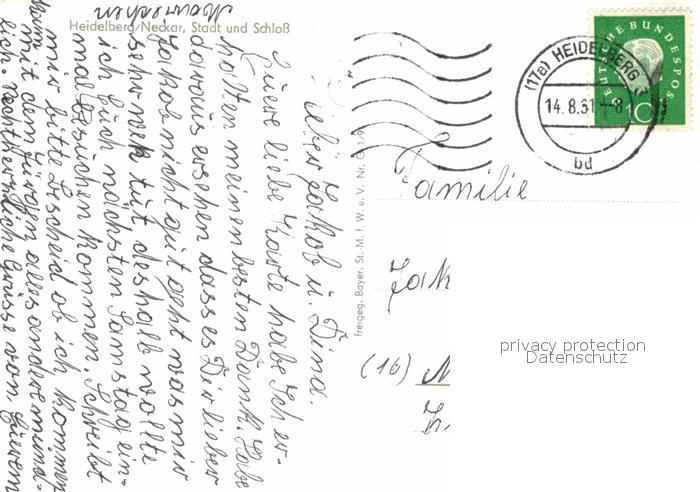 Heidelberg/Neckar, Stadt und Schloß
Lieber Jakob u. Dina.
Euere liebe Karte habe Ich er-
halten meinen besten Dank. Habe
daraus ersehen dass es Dir lieber
Jakob nicht gut geht was mir
sehr weh tut deshalb wollte
ich Euch nächsten Samstag ein-
mal besuchen kommen. Schreibt
mir bitte Bescheid ob ich kommen
kann
mit dem Jürgen alles andere münd-
lich. Recht herzliche Grüsse von Euerem
freigeg. Bayer. St.-M. f. W. u. V. Nr.
DEUTSCHE BUNDESPOST
10
(17a) HEIDELBERG
14.8.61.-8
bd
Familie
Jak
(16)
privacy protection
Datenschutz